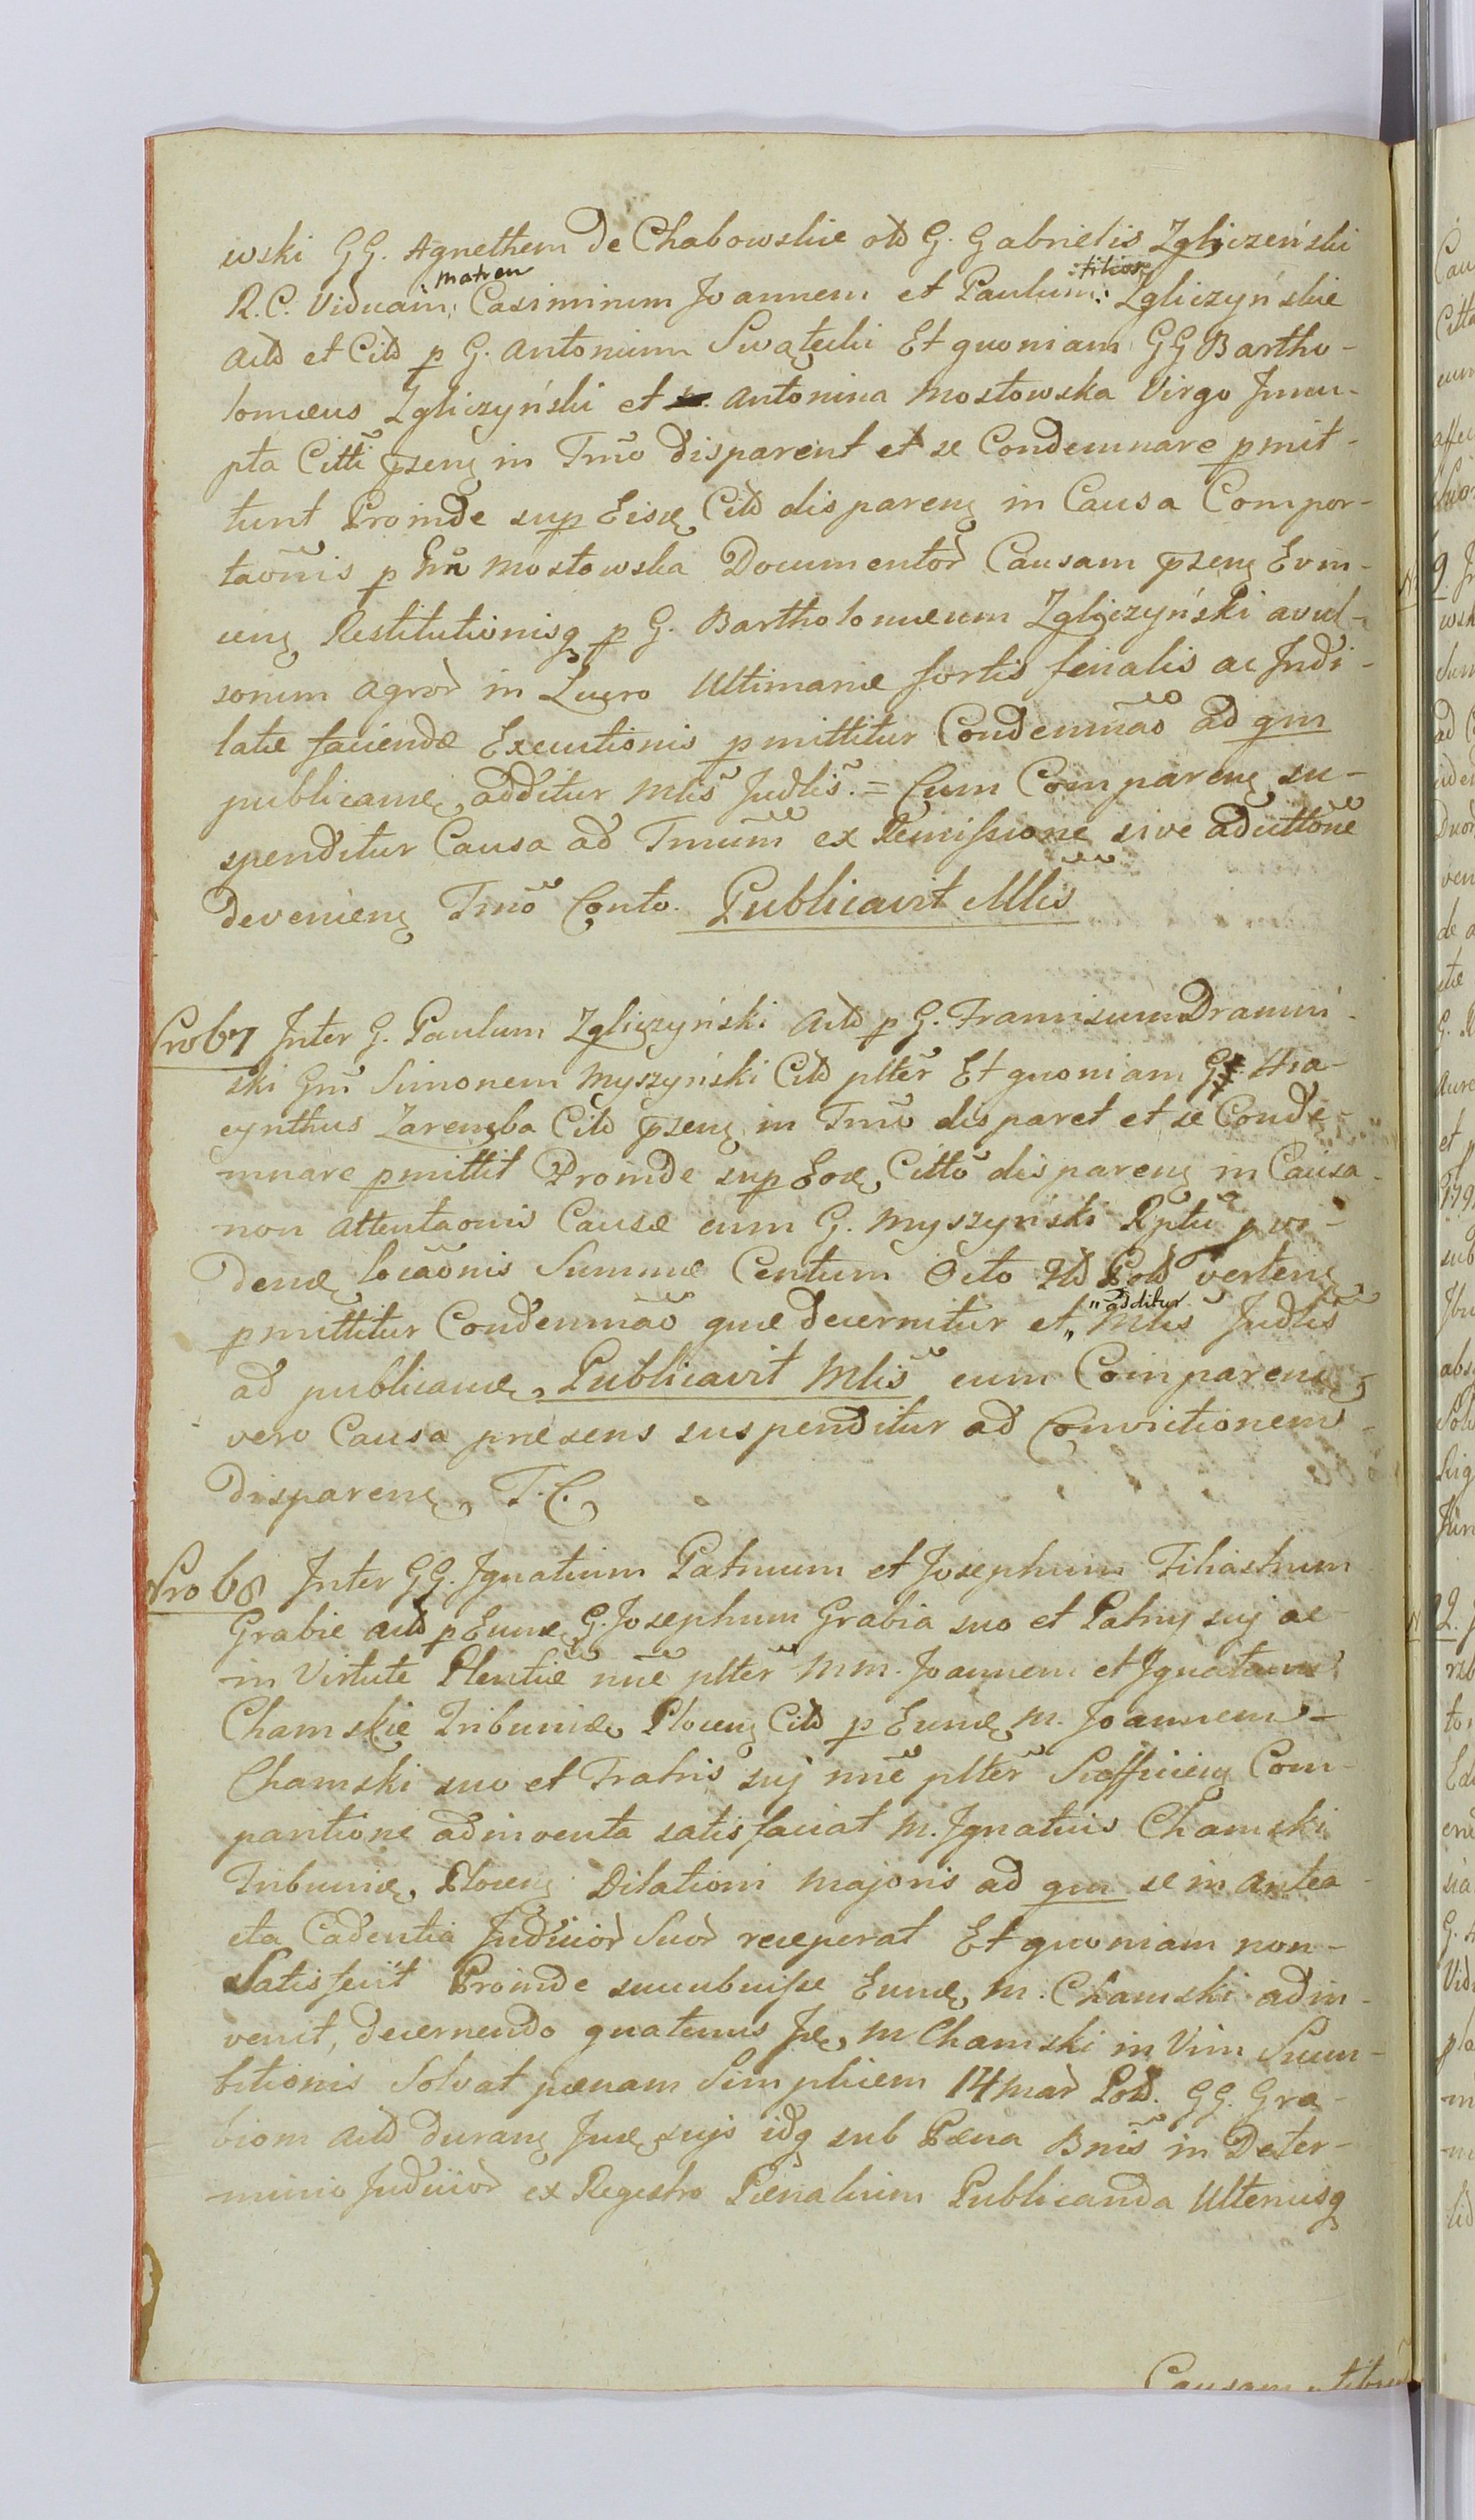 wski GG. Agnethem de Chabowskie olð G. Gabrielis Zgliczeński
R.C. Viduam, matren Casimirum Joannem et Paulum: filios: Zgliczyńskie
Actð et Citð p G. Antonium Swatecki Et quoniam GG Bartho-
lomæus Zgliczyński et Antonina Mostowska Virgo Innu-
pta Citti pzenʒ in Tmõ disparent et se Condemnare pmit-
tunt Proinde sup Eisdʒ Citð disparenʒ in Causa Compor-
taõnis p Gm̃ Mostowska Documentoð Causam pzenʒ Evin-
cenʒ Restitutionisqʒ p G. Bartholomæum Zgliczyński avul-
sorum Agroð in Lucro Ultimariæ sortis ferialis ac Indi-
latæ faciendæ Executionis pmittitur Condemnaõ ad qm
publicanðʒ additur Mlis̃ Judlis̃. = Cum Comparenʒ su-
spenditur Causa ad Tmum̃ ex Remissione sive adcittoñe
devenienʒ Tmõ Conto. Publicavit Mlis̃
Pro 67 Inter G. Paulum Zgliczyński Actð p G. Franciscum Dramiń-
ski Gm̃ Simonem Myszyński Citð plteř Et quoniam G. Hia-
cynthus Zaremba Citð pzenʒ in Tmõ disparet et se Conde-
mnare pmittit Proinde sup Eodʒ Cittõ disparenʒ in Causa
non attentaonis Causæ cum G. Myszyński Rptũ p vi-
denðʒ locaõnis Summæ Centum Octo Flð Polð vertenʒ
pmittitur Condemnaõ quæ decernitur et „additur Mlis̃ Judlis̃
ad publicanðʒ, Publicavit Mlis̃ cum Comparenʒ
vero Causa præsens suspenditur ad Convictionem
disparenʒ, T. C.
Pro 68 Inter GG. Ignatium Patruum et Josephum Filiastrum
Grabie Actð p Eumðʒ G. Josephum Grabia suo et Patruj suj ac
in Virtute Plentiæ nñe plteř MM. Joannem et Ignatium
Chamskie Tribunidʒ Plocenʒ Citð p Eumðʒ M. Joannem
Chamski suo et Fratris suj nñe plteř Sufficienʒ Com-
paritione adinventa satisfaciat M. Ignatius Chamski
Tribunidʒ Plocenʒ Dilationi majoris ad qm se in antea-
cta Cadentia Judicioð Suoð receperat Et quoniam non
Satisfecit Proinde succubuisse Eumðʒ M. Chamski adin-
venit, decernendo quatenus Idʒ, M Chamski in Vim Succu-
bitionis Solvat pænam Simplicem 14 Marð Polð. GG. Gra-
biom Actð duranʒ Judʒ sujs idqʒ sub Pæna Bnis̃ in Deter-
minio Judicioð ex Registro Pænalium Publicanda Ulteriusqʒ
Causam